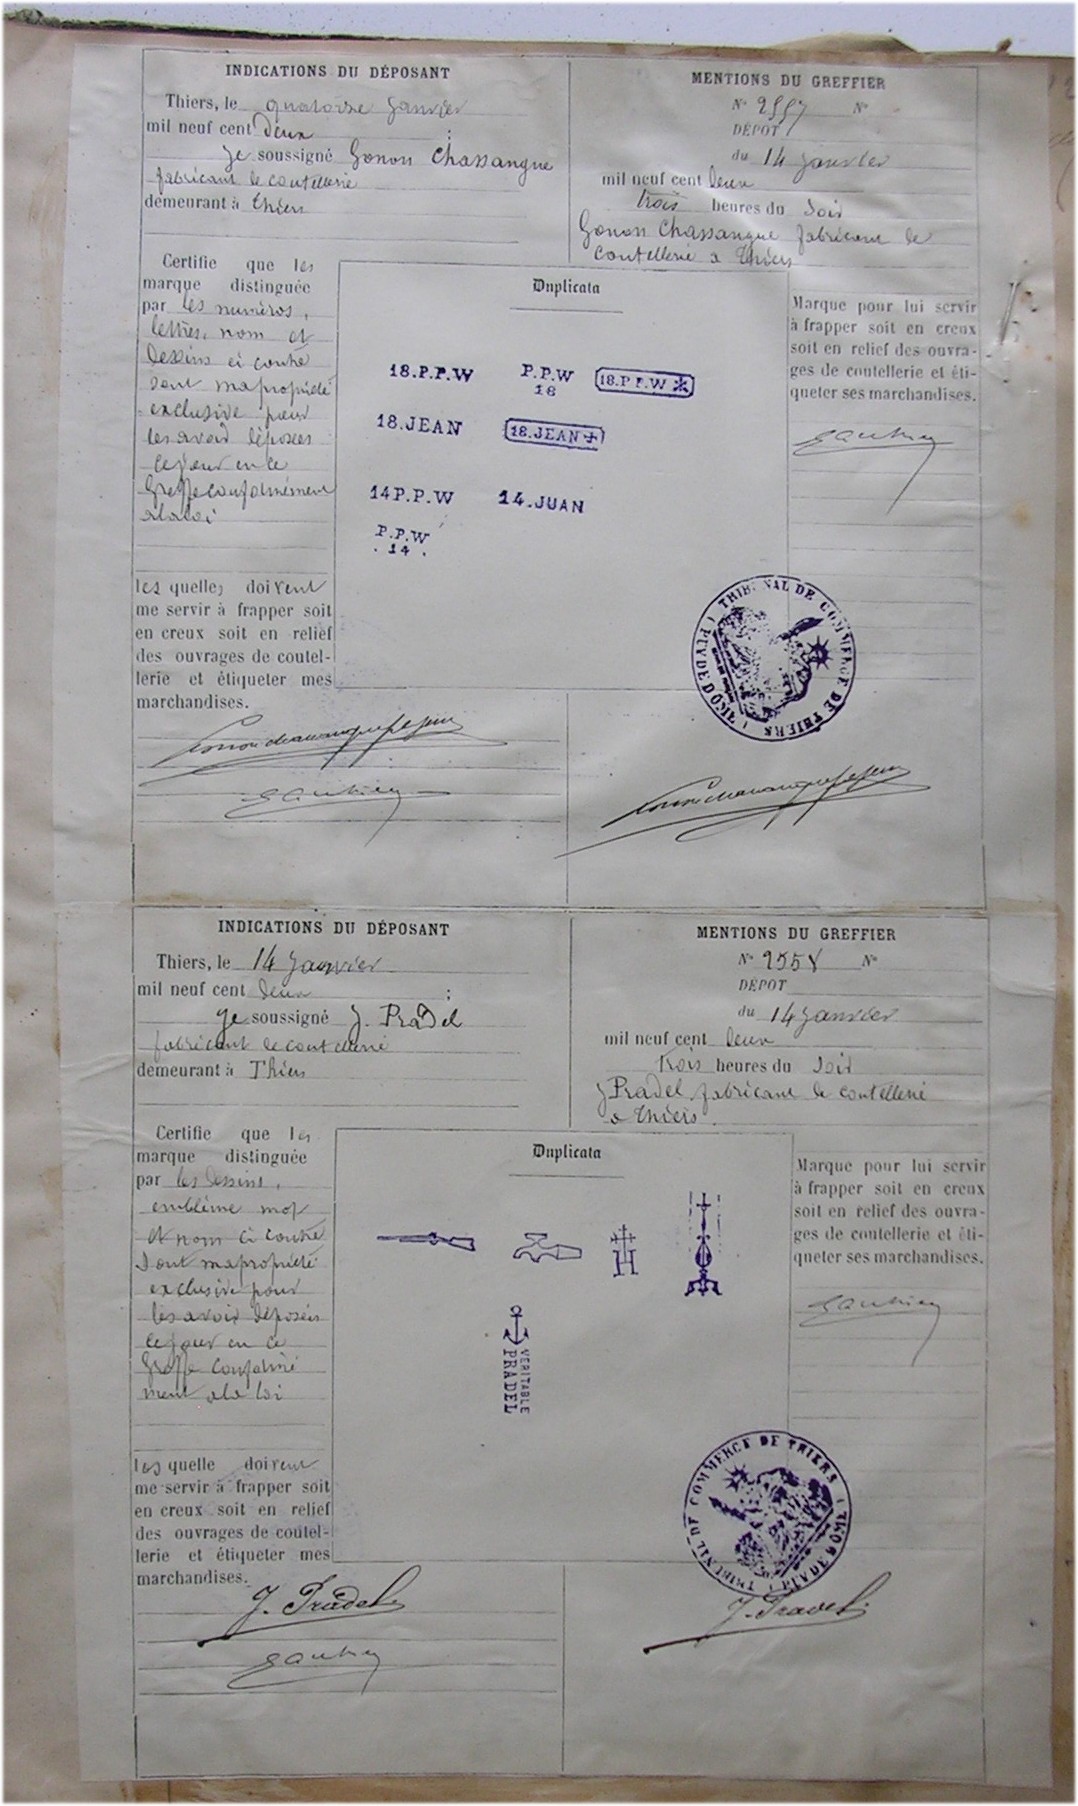 INDICATIONS DU DÉPOSANT
Thiers, le quatorze Janvier
mil neuf cent Deux
Je soussigné Gonon Chassangne
fabricant de coutellerie
demeurant à Thiers
Certifie que les
marque distinguée
par les numéros,
lettres, nom et
Dessins ci contre
sont ma propriété
exclusive pour
les avoir déposées
ce jour en ce
Greffe conformément
a la loi
les quelles doivent
me servir à frapper soit
en creux soit en relief
des ouvrages de coutel-
lerie et étiqueter mes
marchandises.
MENTIONS DU GREFFIER
N° 2557 N°
DÉPOT
du 14 Janvier
mil neuf cent Deux
trois heures du Soir
Gonon Chassangne fabricant de
coutellerie a Thiers
Duplicata
18.P.P.W
P.P.W
18
18.P.P.W
18.JEAN
18.JEAN
14P.P.W
14.JUAN
P.P.W
. 14 .
Marque pour lui servir
à frapper soit en creux
soit en relief des ouvra-
ges de coutellerie et éti-
queter ses marchandises.
TRIBUNAL DE COMMERCE DE THIERS
( PUY DE DOME )
INDICATIONS DU DÉPOSANT
Thiers, le 14 Janvier
mil neuf cent Deux
Je soussigné J. Pradel
fabricant de coutellerie
demeurant à Thiers
Certifie que les
marque distinguée
par les Dessins,
emblème mot
et nom ci contre
sont ma propriété
exclusive pour
les avoir déposées
ce jour en ce
Greffe conformé
ment a la loi
les quelle doivent
me servir à frapper soit
en creux soit en relief
des ouvrages de coutel-
lerie et étiqueter mes
marchandises.
J. Pradel
MENTIONS DU GREFFIER
N° 2558 N°
DÉPOT
du 14 Janvier
mil neuf cent Deux
Trois heures du Soir
J Pradel fabricant de coutellerie
a Thiers
Duplicata
H
VERITABLE
PRADEL
Marque pour lui servir
à frapper soit en creux
soit en relief des ouvra-
ges de coutellerie et éti-
queter ses marchandises.
TRIBUNAL DE COMMERCE DE THIERS
( PUY DE DOME )
J. Pradel